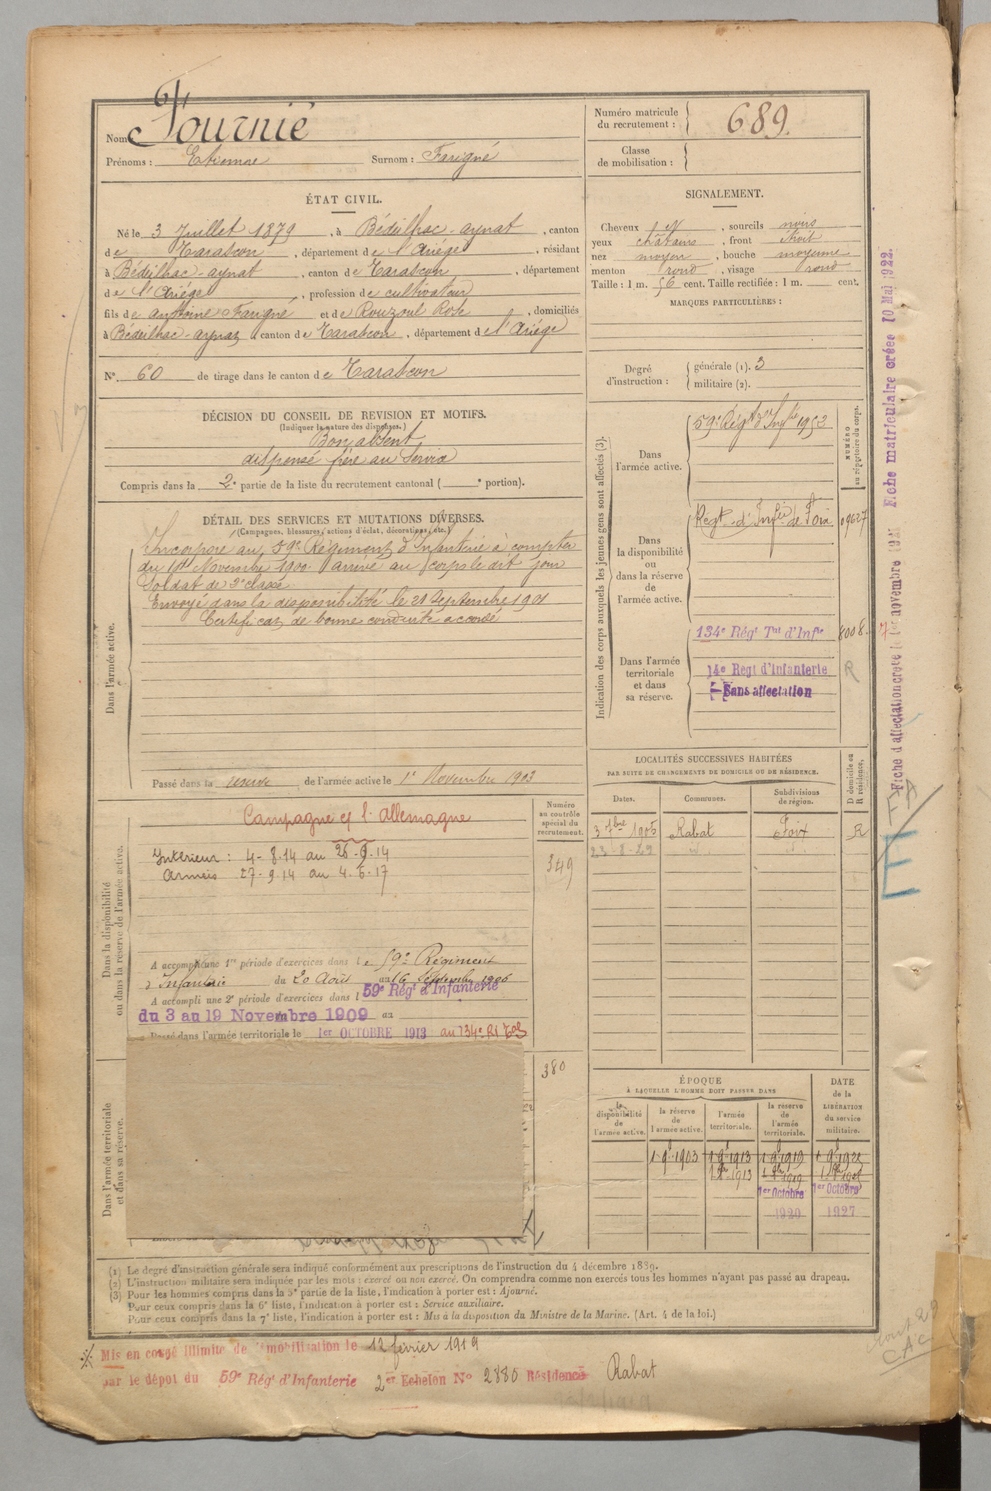 Nom Fournié
Prénoms : Etienne Surnom : Farigné
Numéro matricule
du recrutement : 689
Classe
de mobilisation :
ÉTAT CIVIL.
Né le 3 Juillet 1879, à Bédeilhac-aynat, canton
de Tarascon, département de l'Ariége, résidant
à Bédeilhac-aynat, canton de Tarascon, département
de l'Ariége, profession de cultivateur
fils de antoine Farigné et de Rouzoul Rose, domiciliés
à Bédeilhac-aynat canton de Tarascon, département de l'Ariége
N° 60 de tirage dans le canton de Tarascon
SIGNALEMENT.
Cheveux , sourcils noirs
yeux chatains, front étroit
nez moyen, bouche moyenne
menton rond, visage rond
Taille : 1 m. 56 cent. Taille rectifiée : 1 m. cent.
MARQUES PARTICULIÈRES :
Degré
d'instruction :
générale (1). 3
militaire (2).
DÉCISION DU CONSEIL DE REVISION ET MOTIFS.
(Indiquer la nature des dispenses.)
Bon absent
dispensé frère au Service
Compris dans la 2e partie de la liste du recrutement cantonal ( e portion).
DÉTAIL DES SERVICES ET MUTATIONS DIVERSES.
(Campagnes, blessures, actions d'éclat, décorations, etc.)
Dans l'armée active.
Incorporé au 59e Régiment d'Infanterie à compter
du 1er Novembre 1900 arrivé au corps le dit jour
Soldat de 2e classe
Envoyé dans la disponibilité le 21 Septembre 1901
Certificat de bonne conduite accordé
Passé dans la réserve de l'armée active le 1er Novembre 1903
Indication des corps auxquels les jeunes gens sont affectés (3).
NUMÉRO
au répertoire du corps.
Dans
l'armée active.
59e Régt d'Infie 1952
Dans
la disponibilité
ou
dans la réserve
de
l'armée active.
Regt d'Infie de Foix
Dans l'armée
territoriale
et dans
sa réserve.
134e Régt Tal d'Infie 8008
14e Regt d'Infanterie R
Sans affectation
Dans la disponibilité
ou dans la réserve de l'armée active.
Campagne c/ l'Allemagne
Intérieur : 4-8-14 au 26-9-14
Armées 27-9-14 au 4-6-17
Numéro
au contrôle
spécial du
recrutement.
349
A accompli une 1re période d'exercices dans le 59e Régiment
d'Infanterie du 20 Août au 16 Septembre 1906
A accompli une 2e période d'exercices dans l 59e Régt d'Infanterie
du 3 au 19 Novembre 1909 au
Passé dans l'armée territoriale le 1er OCTOBRE 1913 au 134e RI
380
Dans l'armée territoriale
et dans sa réserve.
LOCALITÉS SUCCESSIVES HABITÉES
PAR SUITE DE CHANGEMENTS DE DOMICILE OU DE RÉSIDENCE.
Dates. Communes. Subdivisions
de région. D domicile ou
R résidence.
3 7bre 1905 Rabat Foix R
23-8-29
ÉPOQUE
À LAQUELLE L'HOMME DOIT PASSER DANS
la
disponibilité
de
l'armée active.
la réserve
de
l'armée active.
l'armée
territoriale.
la réserve
de
l'armée
territoriale.
DATE
de la
LIBÉRATION
du service
militaire.
1913
1er Octobre 1er Octobre
1920 1927
(1) Le degré d'instruction générale sera indiqué conformément aux prescriptions de l'instruction du 4 décembre 1889.
(2) L'instruction militaire sera indiquée par les mots : exercé ou non exercé. On comprendra comme non exercés tous les hommes n'ayant pas passé au drapeau.
(3) Pour les hommes compris dans la 5e partie de la liste, l'indication à porter est : Ajourné.
Pour ceux compris dans la 6e liste, l'indication à porter est : Service auxiliaire.
Pour ceux compris dans la 7e liste, l'indication à porter est : Mis à la disposition du Ministre de la Marine. (Art. 4 de la loi.)
Mis en congé illimité de démobilisation le 12 février 1919
par le dépôt du 59e Régt d'Infanterie 2er Echelon N° 2880 Résidence Rabat
Fiche matriculaire créée 10 Mai 1922.
Fiche d'affectation créée le 1er novembre 1921
CAC